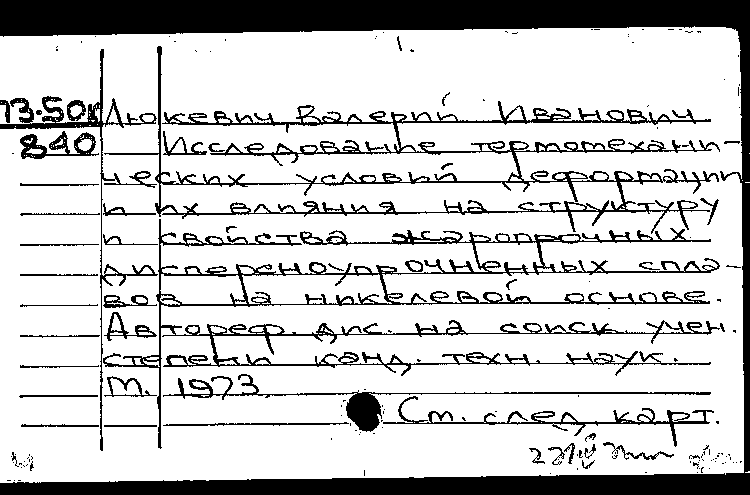 1.
Люкевич, Валерий Иванович
73-50к
840
Исследование термотехани-
ческих условий деформации
и их влияния на структуру
и свойства жаропрочных
дисперсноупрочненных спла-
вов на никелевой основе.
Автореф. дис. на соиск. учен.
степени канд. техн. наук.
М. 1973.
См. след. карт.